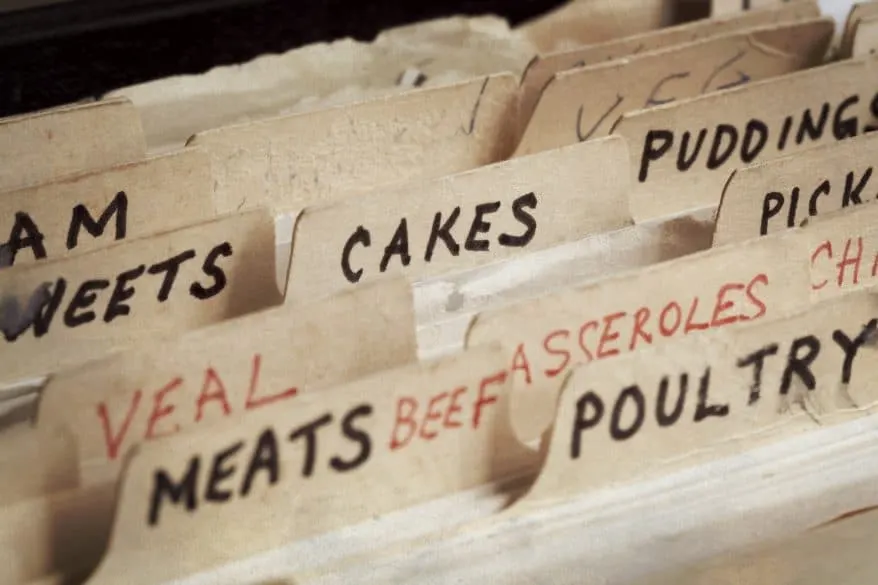 VEG
PUDDINGS
AM
CAKES
PICK
WEETS
CHI
ASSEROLES
VEAL
POULTRY
MEATS BEEF